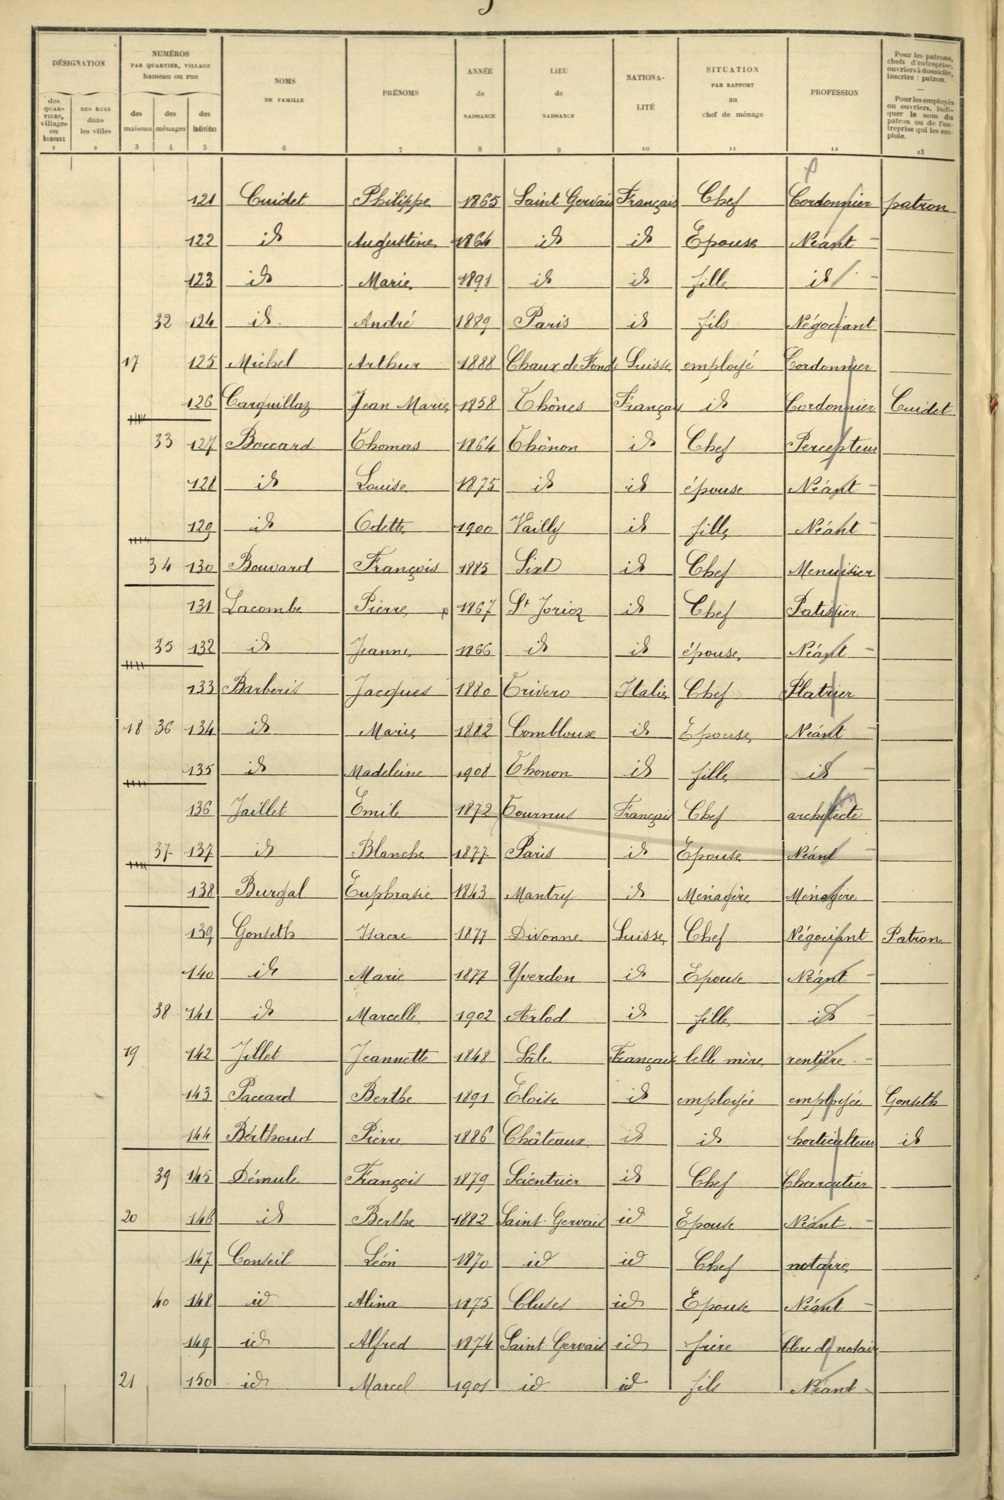 DÉSIGNATION
NUMÉROS
PAR QUARTIER, VILLAGE
hameau ou rue
NOMS
DE FAMILLE
PRÉNOMS
ANNÉE
de
NAISSANCE
LIEU
de
NAISSANCE
NATIONA-
LITÉ
SITUATION
PAR RAPPORT
au
chef de ménage
PROFESSION
Pour les patrons,
chefs d'entreprise,
ouvriers à domicile,
inscrire : patron.
—
Pour les employés
ou ouvriers, indi-
quer le nom du
patron ou de l'en-
treprise qui les em-
ploie.
des
QUAR-
TIERS,
villages
ou
hameaux
DES RUES
dans
les villes
des
maisons
des
ménages
des
individus
1 2 3 4 5 6 7 8 9 10 11 12 13
121 Cuidet Philippe 1865 Saint Gervais Français Chef Cordonnier patron
122 id Augustine 1864 id id Epouse Néant -
123 id Marie 1891 id id fille id -
32 124 id André 1889 Paris id fils Négociant
17 125 Michel Arthur 1888 Chaux de Fonds Suisse employé Cordonnier
126 Carquillaz Jean Marie 1858 Thônes Français id Cordonnier Cuidet
33 127 Boccard Thomas 1864 Thônon id Chef Percepteur
128 id Louise 1875 id id épouse Néant -
129 id Odette 1900 Vailly id fille Néant -
34 130 Bouvard François 1885 Sixt id Chef Menuisier
131 Lacombe Pierre 1867 St Jorioz id Chef Patissier
35 132 id Jeanne 1866 id id épouse Néant -
133 Barberis Jacques 1880 Trivero Italie Chef Platrier
18 36 134 id Marie 1882 Combloux id Epouse Néant -
135 id Madeleine 1908 Thonon id fille id -
136 Jaillet Emile 1872 Tournus Français Chef architecte
37 137 id Blanche 1877 Paris id Epouse Néant
138 Burgal Euphrasie 1843 Mantry id Menagère Ménagère
139 Gonseth Isaac 1877 Divonne Suisse Chef Négociant Patron
140 id Marie 1877 Yverdon id Epouse Néant -
38 141 id Marcelle 1902 Arlod id fille id -
19 142 Jillet Jeannette 1848 Sâle Français belle mère rentière -
143 Paccard Berthe 1891 Eloise id employée employée Gonseth
144 Berthoud Pierre 1886 Châteaux id id horticulteur id
39 145 Démule François 1879 Scientrier id Chef Charcutier
20 146 id Berthe 1882 Saint Gervais id Epouse Néant -
147 Conseil Léon 1870 id id Chef notaire
40 148 id Alina 1875 Cluses id Epouse Néant -
149 id Alfred 1874 Saint Gervais id frère Clerc de notaire
21 150 id Marcel 1901 id id fils Néant -